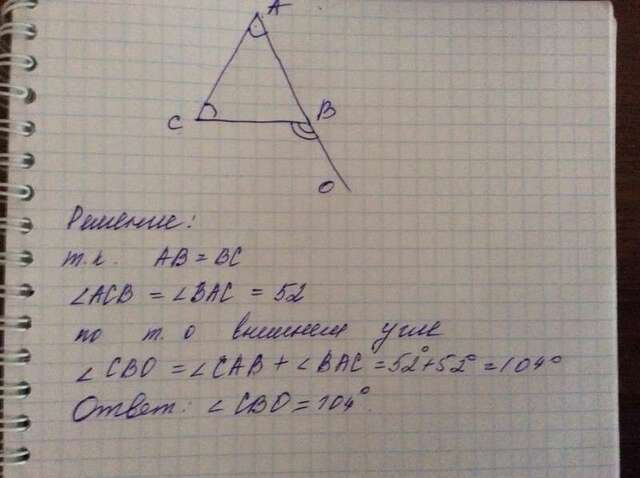 A
C
B
O
Решение:
т.к. AB = BC
∠ACB = ∠BAC = 52
по т. о внешнем угле
∠CBO = ∠CAB + ∠BAC = 52° + 52° = 104°
Ответ: ∠CBO = 104°.